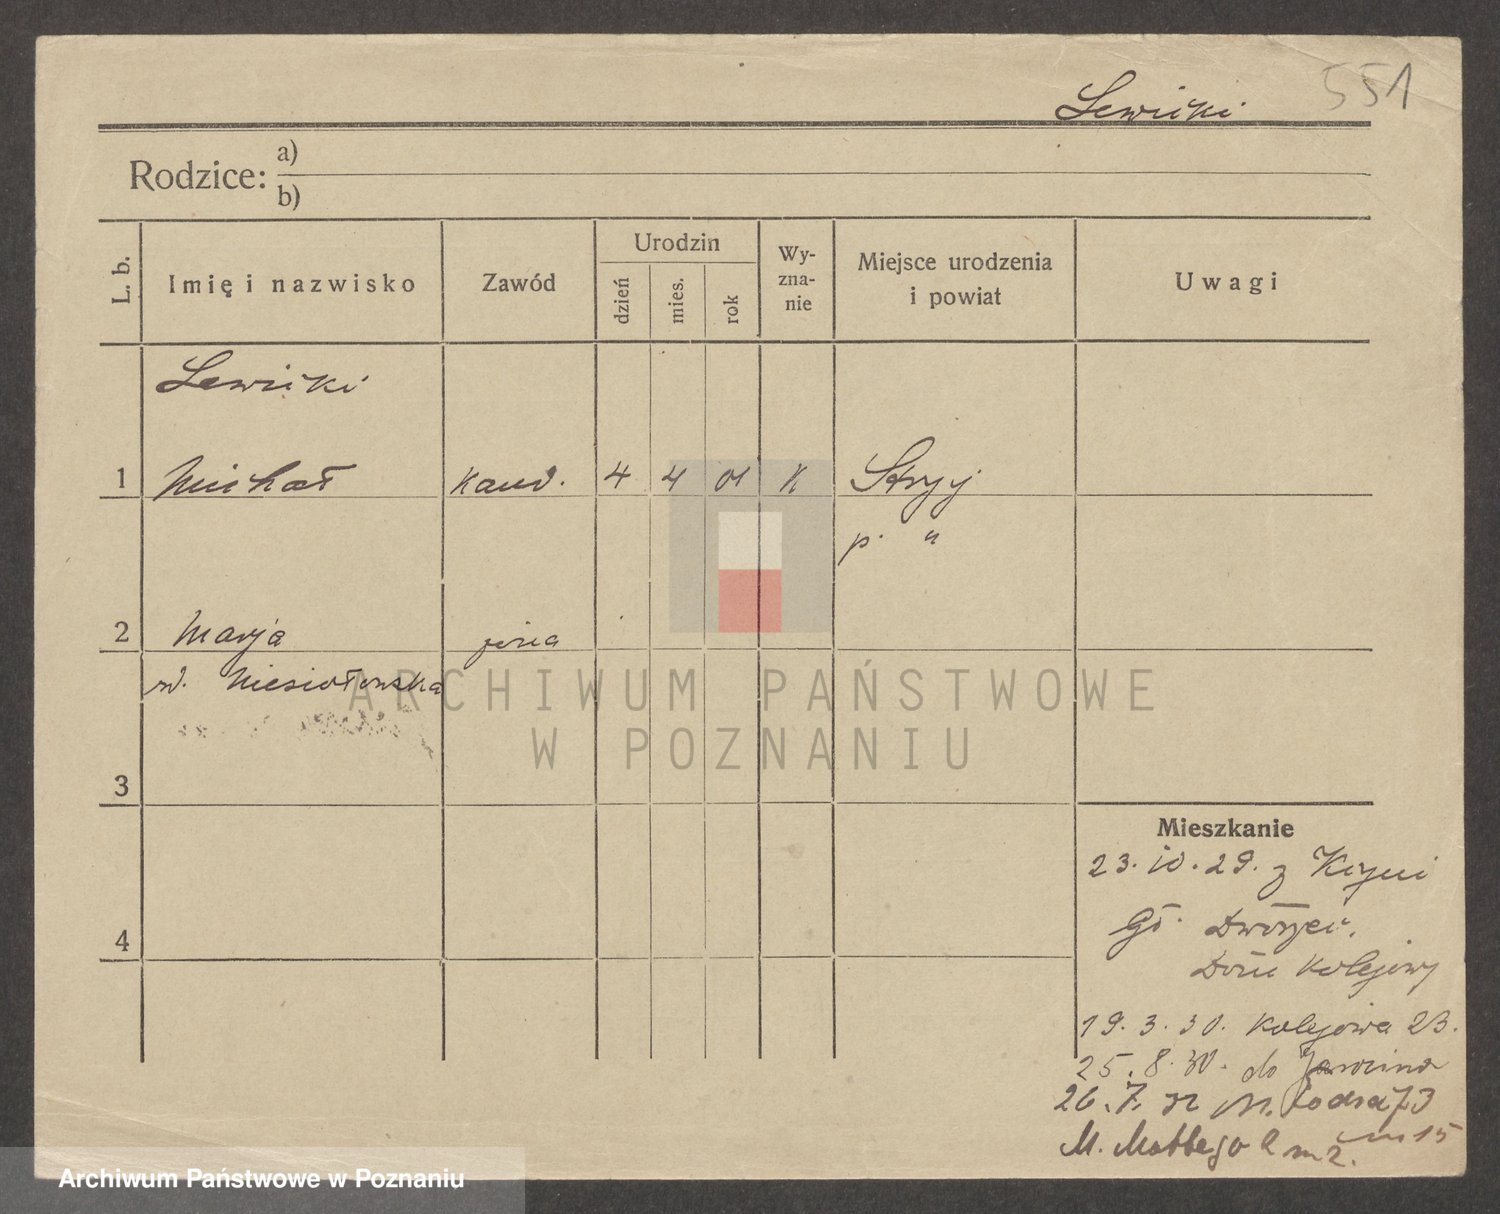 551
Lewicki
Rodzice: a)
b)
L. b.
Imię i nazwisko
Zawód
Urodzin
dzień
mies.
rok
Wy-
zna-
nie
Miejsce urodzenia
i powiat
Uwagi
Lewicki
1 Michał kand. 4 4 01 K Stryj
p. "
2 Marja żona
Niesiołowska
3
4
Mieszkanie
23.10.29. z Kcyni
Gł. Dworzec.
Dom Kolejowy
19.3.30. Kolejowa 23.
25.8.30. do Jarocina
26.7.
M. Mottego 2 m 2.
m 15
ARCHIWUM PAŃSTWOWE
W POZNANIU
Archiwum Państwowe w Poznaniu